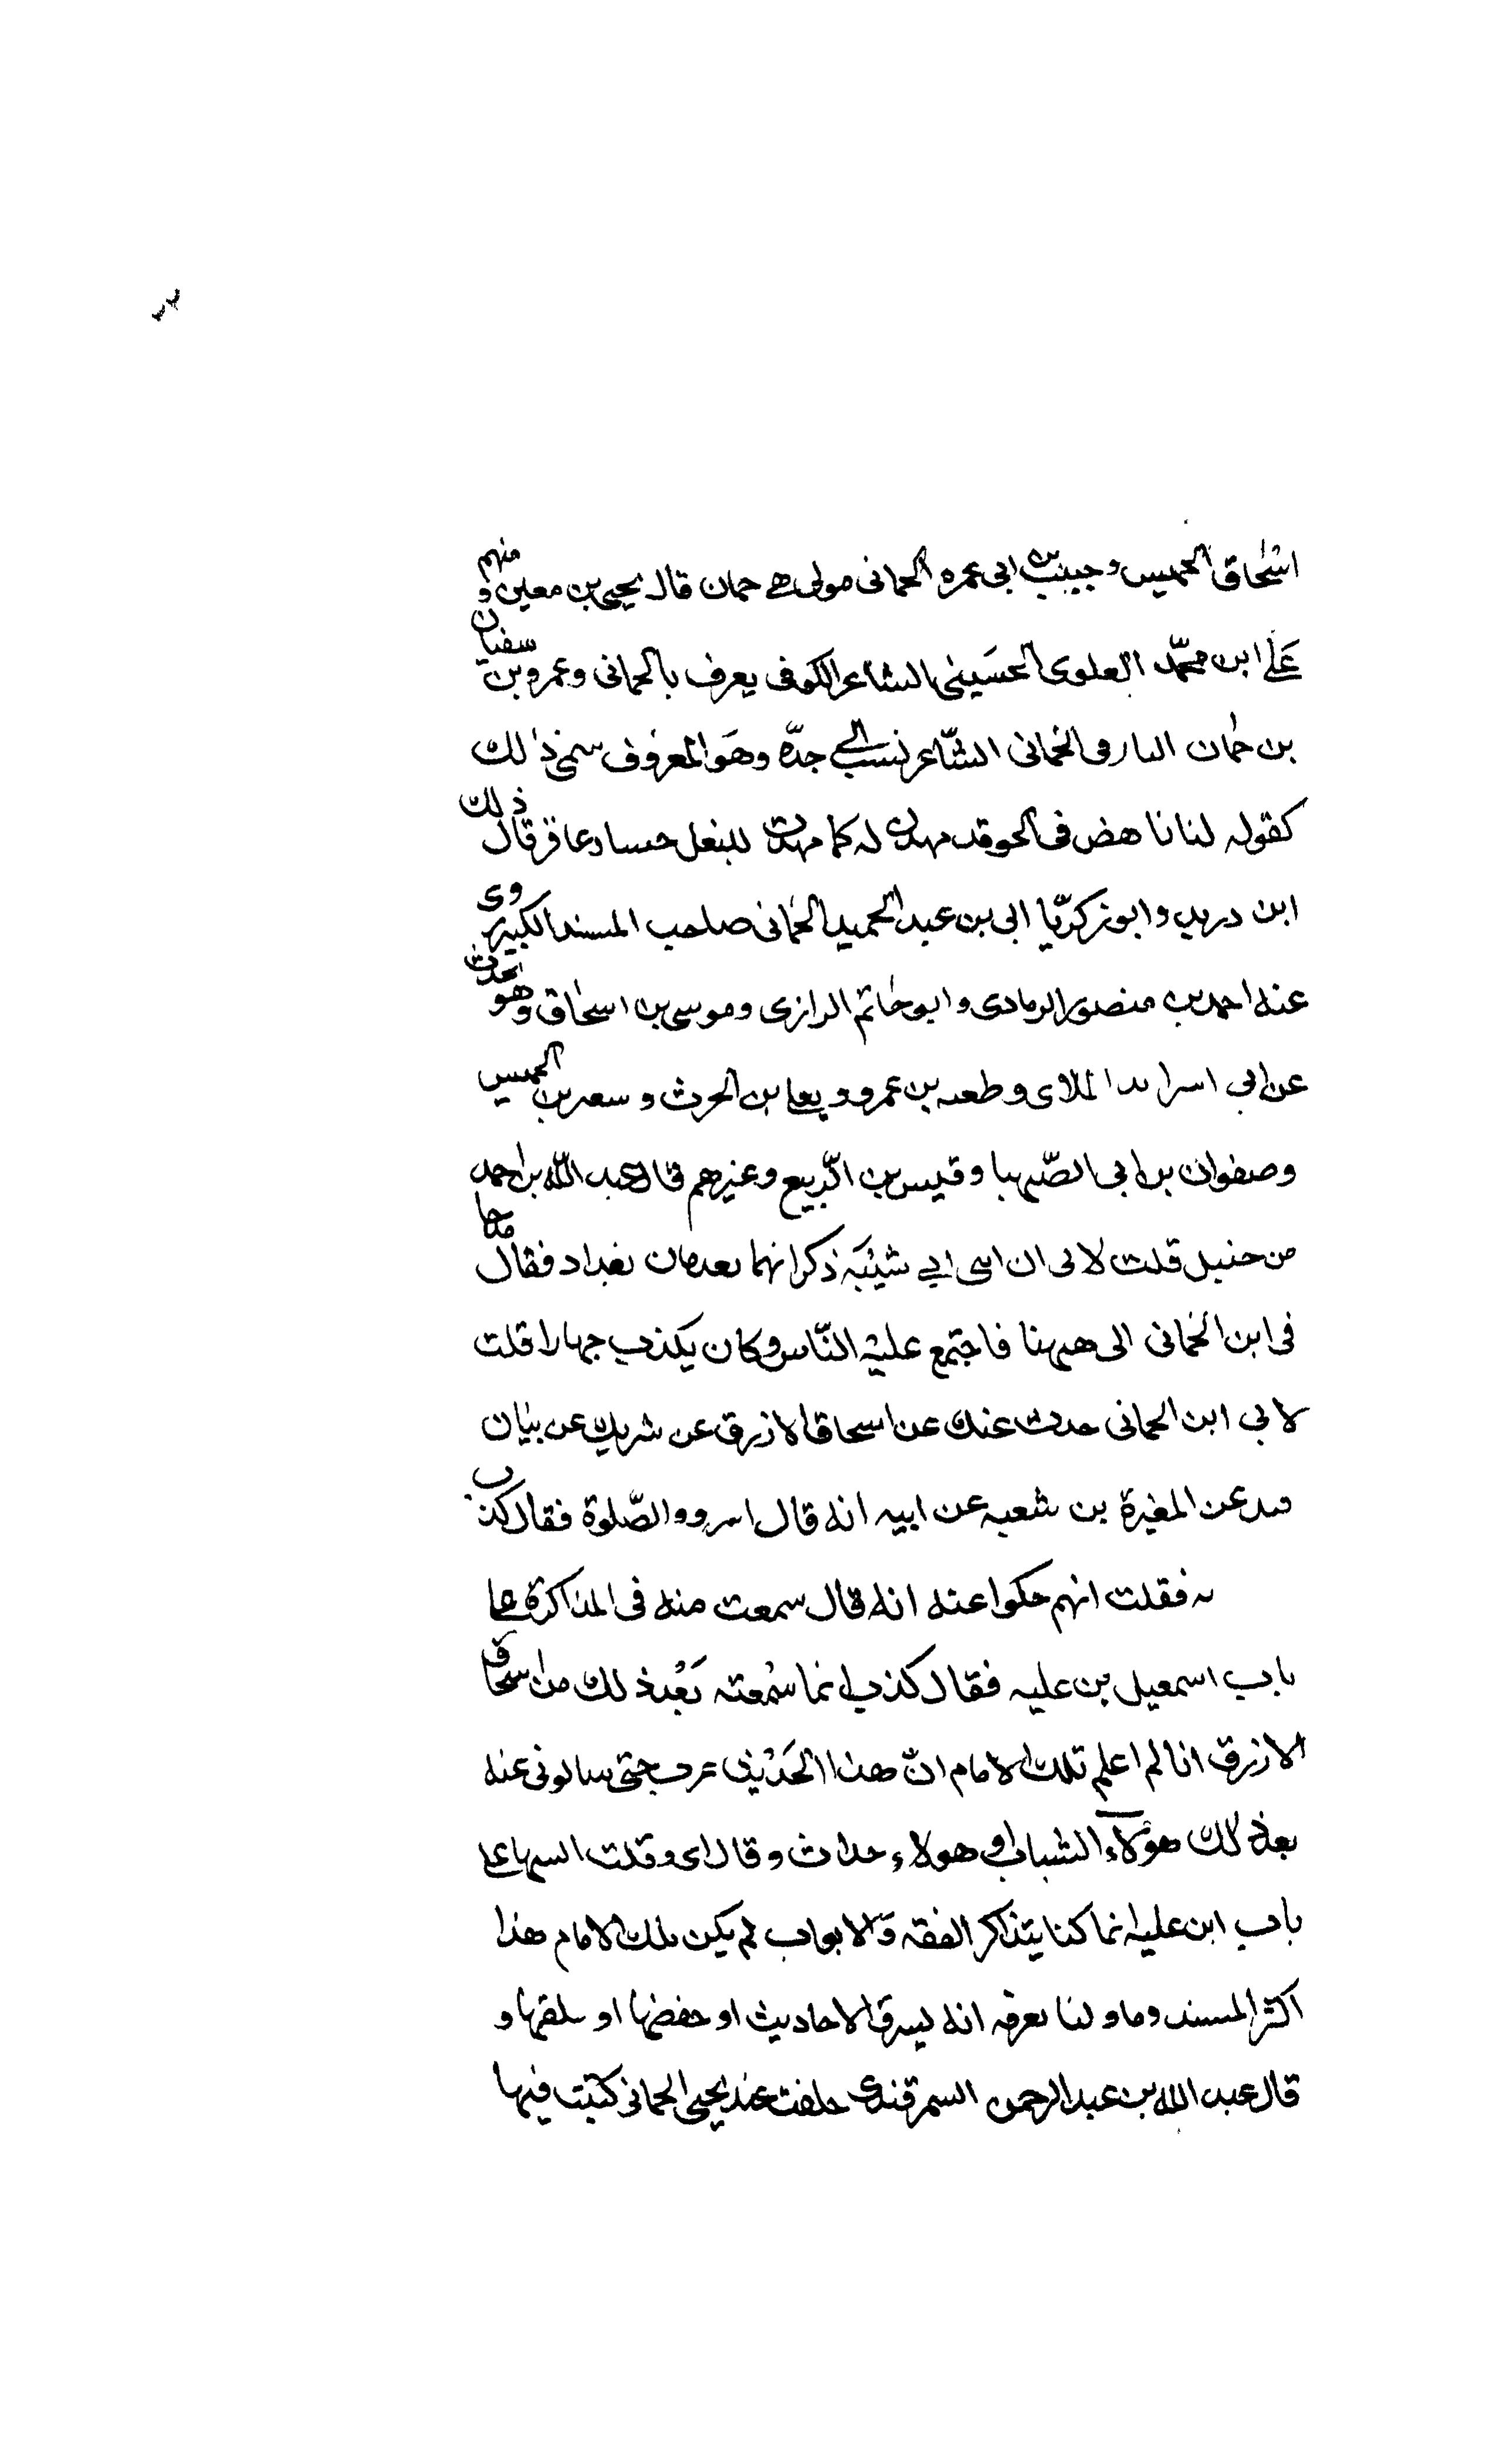 اسحاق الحميس وحبيب بن ابى عمره الحمانى مولى حمان قال يحيى بن معين ومنهم
على ابن محمّد العلوى الحسينى الشاعر الكوفى يعرف بالحمانى وعمرو بن سفيان
بن حمان البارقى الحمانى الشّاعر نسب الى جدّه وهو المعروف سمى ذلك
كقوله لنا ناهض فى الحو قد مهدت له كما مهدت للبعل حسنا وعاقر قال ذلك
ابن دريد وابو زكريّا ابى بن عبد الحميد الحمانى صاحب المسند الكبير روى
عنه احمد بن منصور الرمادى وابو حاتم الرازى وموسى بن اسحاق وهو يحدث
عن ابى اسرا الملاى وطعمه بن عمرو ويعلى بن الحرث وسعير بن الحميس
وصفوان بن ابى الصّهبا وقيس بن الرّبيع وغيرهم قال عبد اللّه بن احمد
من حنبل قلت لابى ان ابى شيبة ذكرا انهما يعدمان بغداد فقال ما جا
فى ابن الحمانى الى هيهنا فاجتمع عليه النّاس وكان يكذب جهارا قلت
لابى ابن الحمانى حدث عنك عن اسحاق الازرق عن شريك عن بيان
عن المغيرة بن شعبه عن ابيه انه قال ابردوا الصّلوة فقال كذب
فقلت انهم حكوا عنه انه قال سمعت منه فى المذاكرة على
باب اسمعيل بن عليه فقال كذب انما سمعته بعد ذلك من اسحاق
الازرق انا لم اعلم تلك الامام انّ هذا الحديث عرب حتى سالونى عنه
بعد ذلك هؤلاء الشباب او هولاء حداث وقال اى وقت السماع على
باب ابن عليه انما كنا يتذاكر الفقه والابواب لم يكن تلك الامام هذا
اكثر المسند وما ولنا نعرفه انه يسرق الاحاديث او حفضها او يلقمها و
قال عبد الله بن عبد الرحمن السمرقندى خلفت عند يحيى الحمانى كتبت فيها